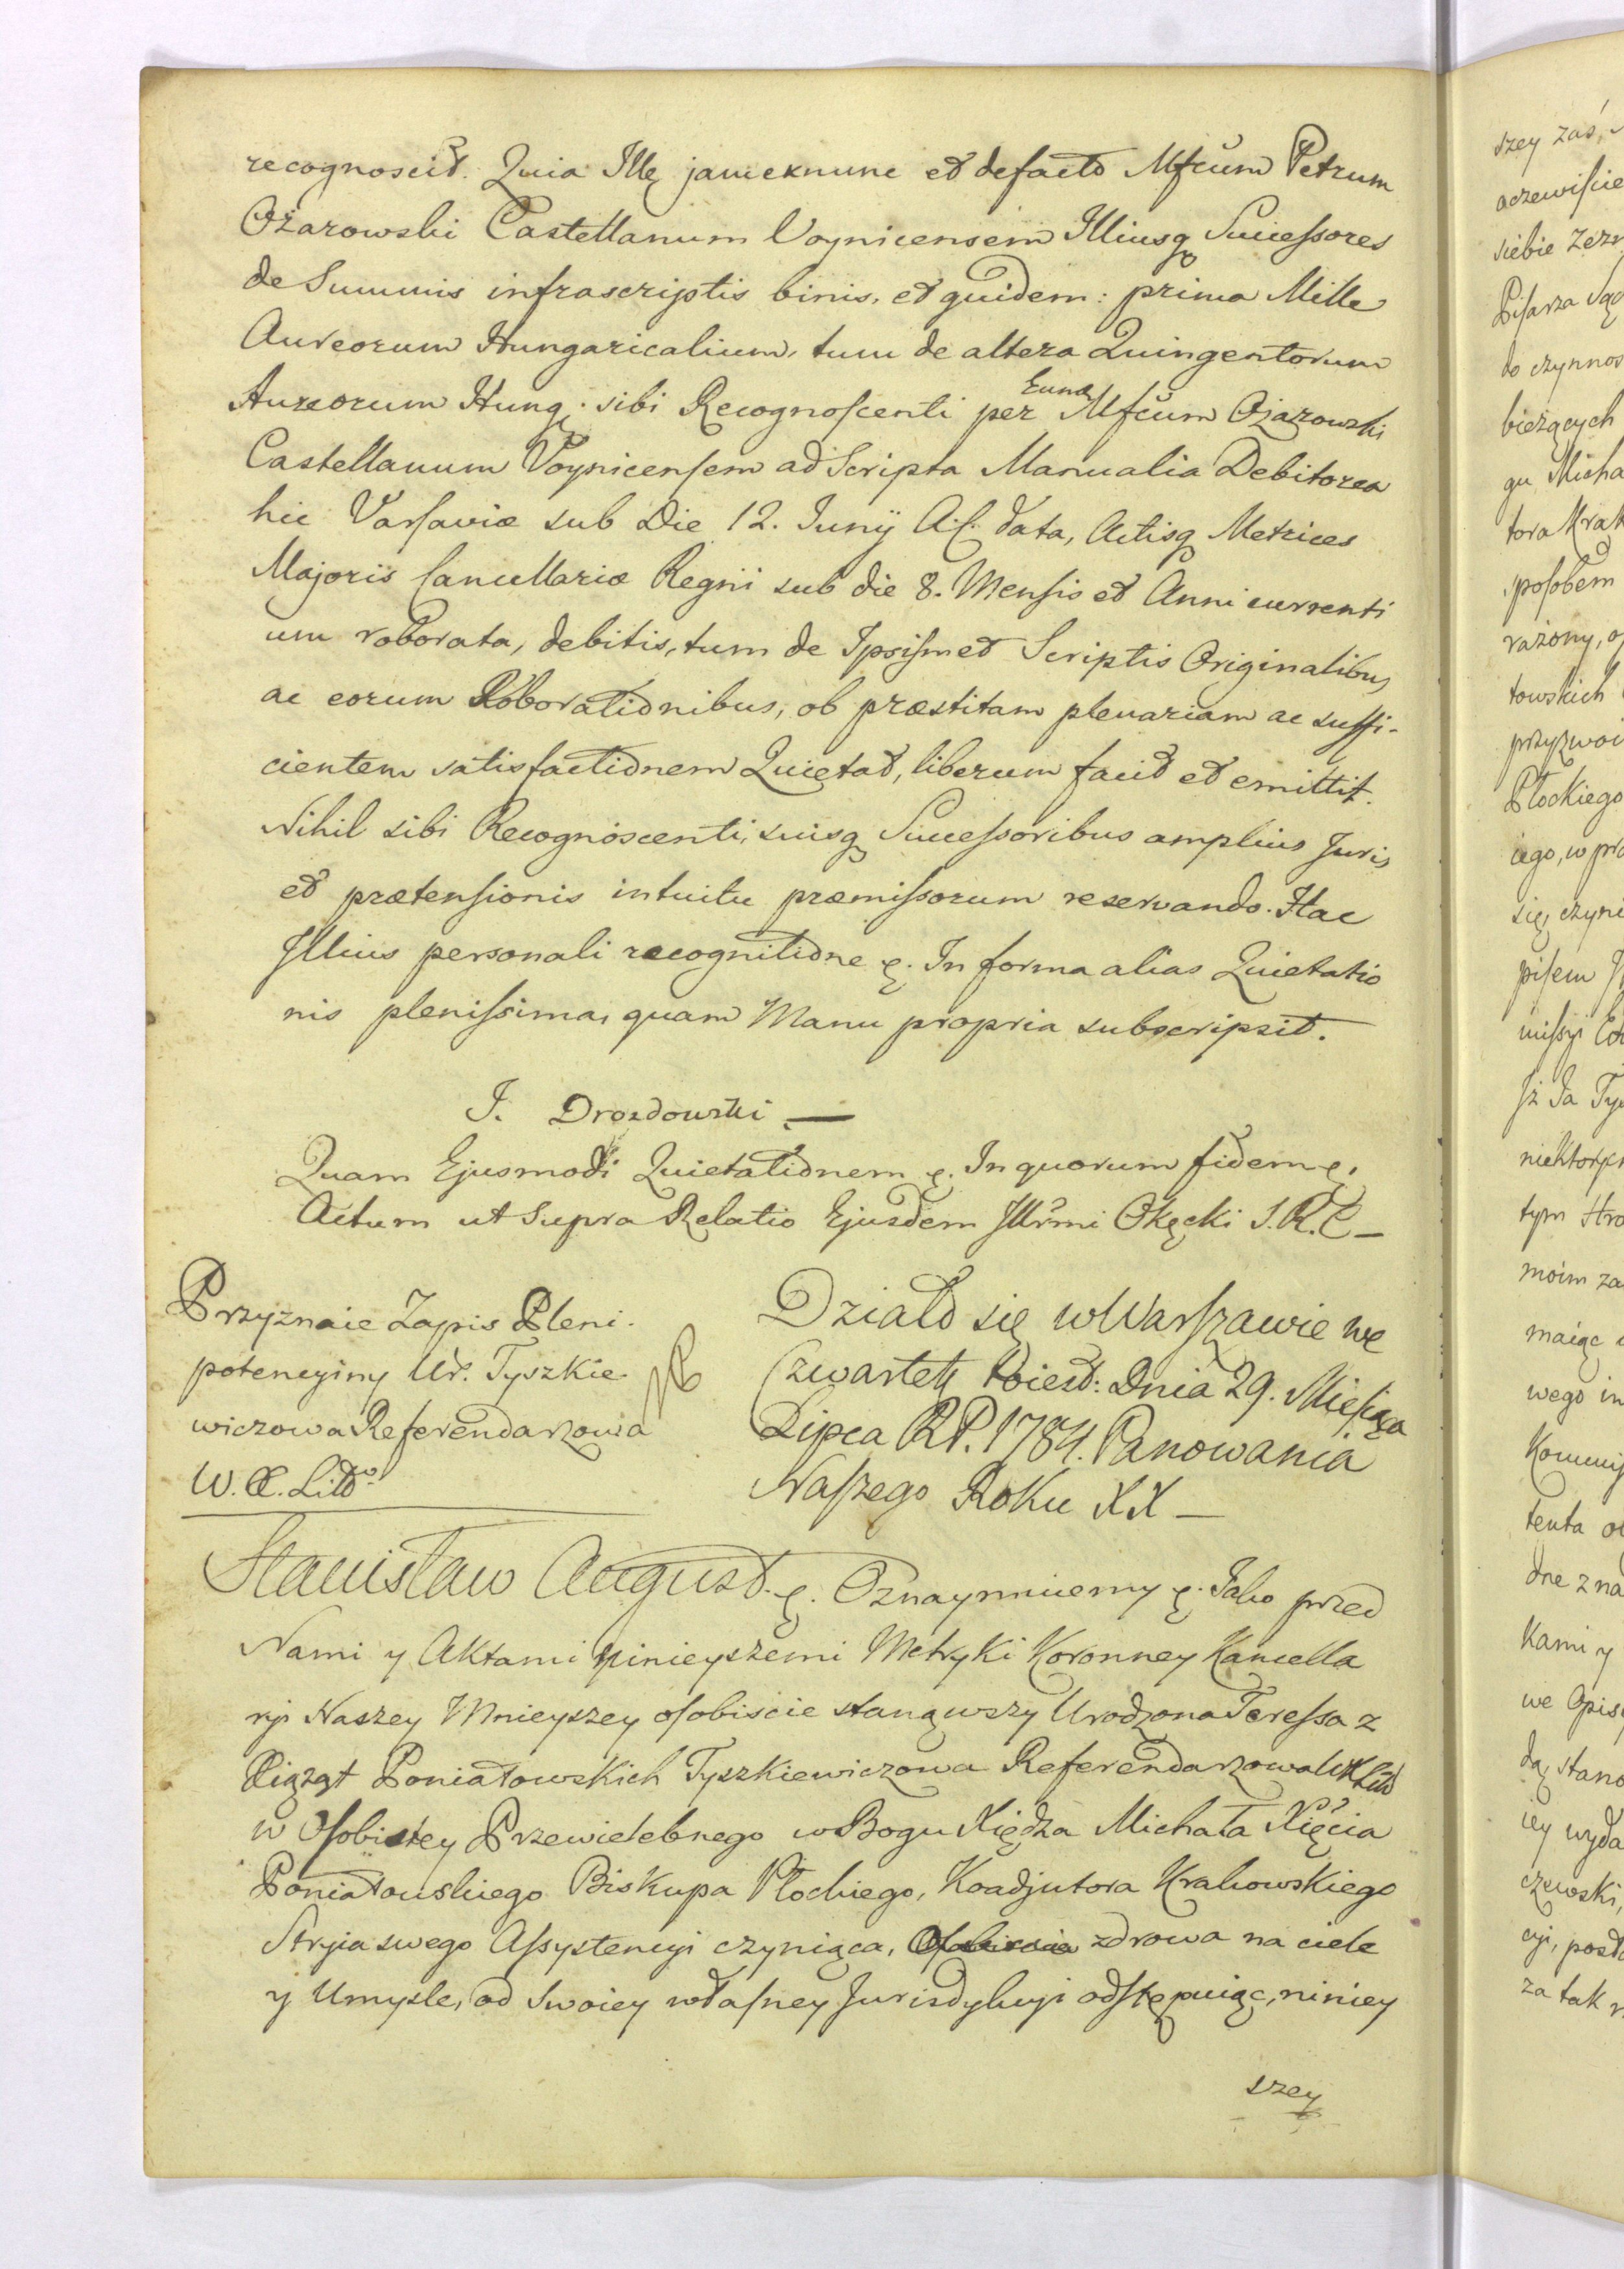 recognoscit. Quia Ille jam exnunc et defacto Mfcum Petrum
Ożarowski Castellanum Voynicensem Illiusq Successores
de Summis infrascriptis binis, et quidem: prima Mille
Aureorum Hungaricalium, tum de altera Quingentorum
Aureorum Hung. sibi Recognoscenti per Eund Mfcum Ożarowski
Castellanum Voynicensem ad Scripta Manualia Debitorea
hic Varsaviæ sub Die 12. Junÿ A. C. data, Actisq Metrices
Majoris Cancellariæ Regni sub die 8. Mensis et Anni currenti
um roborata, debitis, tum de Ipsismet Scriptis Originalibus
ac eorum Roborationibus, ob præstitam plenariam ac suffi-
cientem satisfactionem Quietat, liberum facit et emittit.
Nihil sibi Recognoscenti, suisq Successoribus amplius Juris
et prætensionis intuitu præmissorum reservando. Hac
Illius personali recognitione ę. In forma alias Quietatio
nis plenissima, quam Manu propria subscripsit.
J. Drozdowski —
Quam Ejusmodi Quietationem ę. In quorum fidem ę.
Actum ut Supra Relatio Ejusdem Illrmi Okęcki S. R. C —
Przyznaie Zapis Pleni-
potencyiny Ur. Tyszkie-
wiczowa Referendarzowa
W. X. Litt
Działo się w Warszawie we
Czwartek Dnia 29. Miesiąca
Lipca R.P. 1784. Panowania
Naszego Roku XX —
Stanisław August ę. Oznaymuiemy ę. Jako przed
Nami y Aktami ninieyszemi Metryki Koronney Kancella
ryi Naszey Mnieyszey osobiscie stanąwszy Urodzona Teressa z
Xiążąt Poniatowskich Tyszkiewiczowa Referendarzowa WXLitt
w Osobistey Przewielebnego w Bogu Xiędza Michała Xięcia
Poniatowskiego Biskupa Płockiego, Koadjutora Krakowskiego
Stryia swego Assystencyi czyniąca, zdrowa na ciele
y Umyśle, od Swoiey własney Jurisdykcyi odstępuiąc, niniey
szey
szey zaś,
oczewiscie
siebie zezn
Pisarza Są
do czynnos
bieżących
gu Micha
tora Krak
sposobem
rażony, o
towskich
przyzwoi
Płockiego
iego, w pra
się czyni
pisem
missyi
Jż Ja Ty
niektory
tym
moim za
maiąc
wego in
Kommis
tenta
dne zna
kami y
we Opis
dą stano
iey wyda
czewski,
cyi, posta
za tak